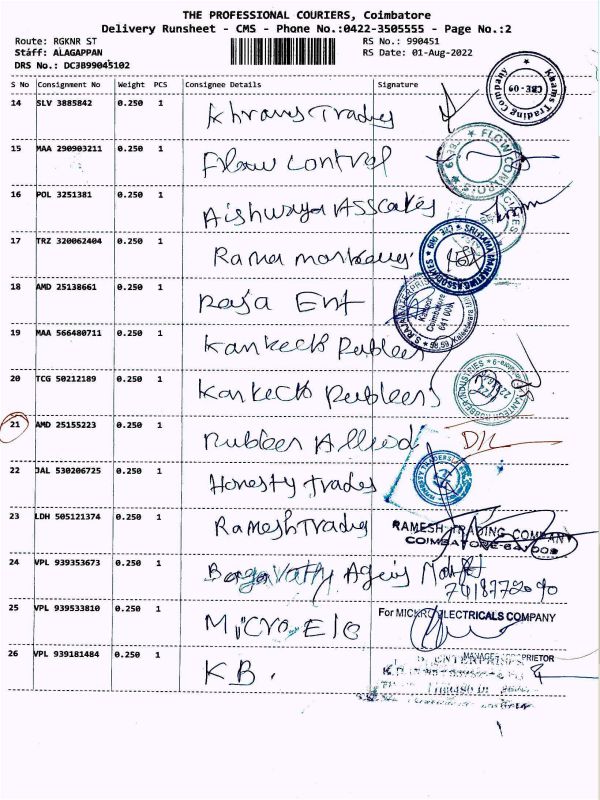 THE PROFESSIONAL COURIERS, Coimbatore
Delivery Runsheet - CMS - Phone No.:0422-3505555 - Page No.:2
Route: RGKNR ST RS No.: 990451
Staff: ALAGAPPAN RS Date: 01-Aug-2022
DRS No.: DC3B99045102
S No Consignment No Weight PCS Consignee Details Signature
14 SLV 3885842 0.250 1 Khrams Trades
Khams Trading Company CBE-09
15 MAA 290903211 0.250 1 Flow control
FLOW CONTROLS
16 POL 3251381 0.250 1 Aishwarya
17 TRZ 320062404 0.250 1 Rama
18 AMD 25138661 0.250 1 Raja Ent
19 MAA 566480711 0.250 1
20 TCG 50212189 0.250 1
RUBBER INDUSTRIES
21 AMD 25155223 0.250 1 Rubber Allied D/L
22 JAL 530206725 0.250 1 Honesty Trades
23 LDH 505121374 0.250 1 Ramesh Trading
RAMESH TRADING COMPANY
COIMBATORE-641009
24 VPL 939353673 0.250 1
25 VPL 939533810 0.250 1 Micro Ele
For MICRO ELECTRICALS COMPANY
PROPRIETOR
26 VPL 939181484 0.250 1 K B.
ENTERPRISES